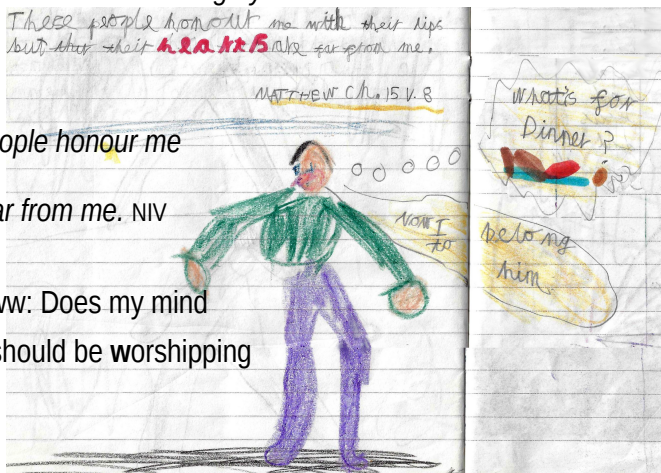 These people honour me with their lips
but their hearts are far from me.
MATTHEW Ch. 15 V. 8
ople honour me
ar from me. NIV
ww: Does my mind
should be worshipping
What's for
Dinner?
Now I belong
to him.